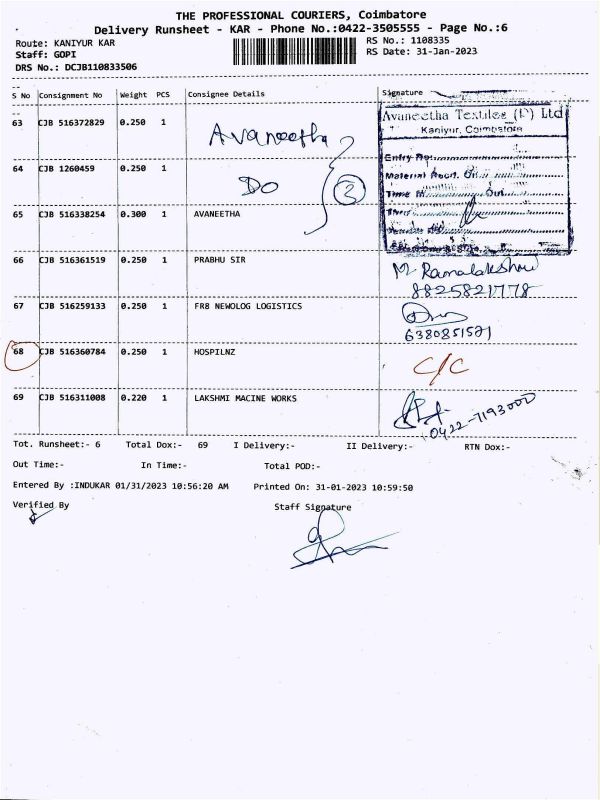 THE PROFESSIONAL COURIERS, Coimbatore
Delivery Runsheet - KAR - Phone No.:0422-3505555 - Page No.:6
Route: KANIYUR KAR
RS No.: 1108335
Staff: GOPI
RS Date: 31-Jan-2023
DRS No.: DCJB110833506
S No Consignment No Weight PCS Consignee Details Signature
63 CJB 516372829 0.250 1 Avaneetha
Avaneetha Textiles (P) Ltd
Kaniyur, Coimbatore
Entry No:
64 CJB 1260459 0.250 1 Do
3
Time Out
65 CJB 516338254 0.300 1 AVANEETHA
66 CJB 516361519 0.250 1 PRABHU SIR
8825821778
67 CJB 516259133 0.250 1 FR8 NEWOLOG LOGISTICS
6380851521
68 CJB 516360784 0.250 1 HOSPILNZ C/C
69 CJB 516311008 0.220 1 LAKSHMI MACINE WORKS
0422-7193000
Tot. Runsheet:- 6 Total Dox:- 69 I Delivery:- II Delivery:- RTN Dox:-
Out Time:- In Time:- Total POD:-
Entered By :INDUKAR 01/31/2023 10:56:20 AM Printed On: 31-01-2023 10:59:50
Verified By Staff Signature